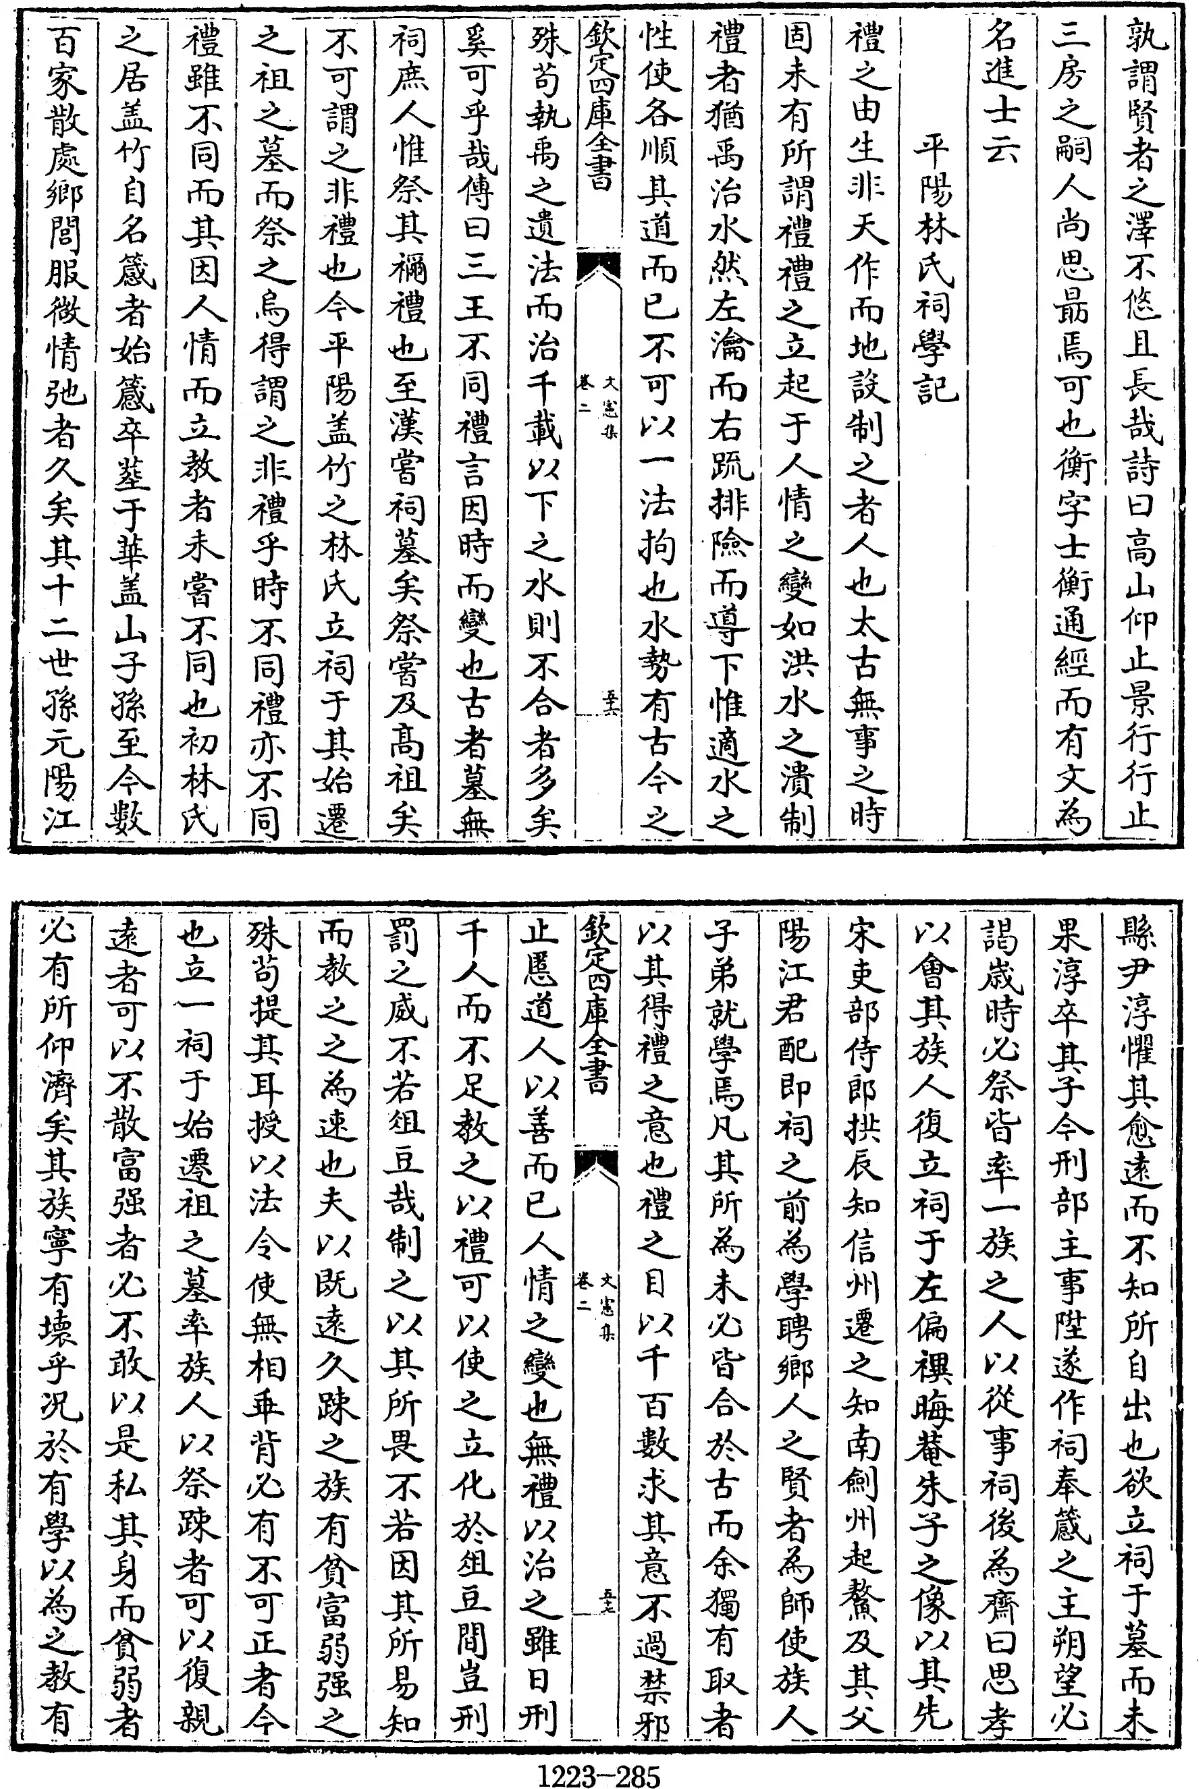 孰謂賢者之澤不悠且長哉詩曰高山仰止景行行止
三房之嗣人尚思勗焉可也衡字士衡通經而有文為
名進士云
平陽林氏祠學記
禮之由生非天作而地設制之者人也太古無事之時
固未有所謂禮禮之立起于人情之變如洪水之潰制
禮者猶禹治水然左瀹而右疏排險而導下惟適水之
性使各順其道而已不可以一法拘也水勢有古今之
欽定四庫全書
文憲集
卷二
五十六
殊茍執禹之遺法而治千載以下之水則不合者多矣
奚可乎哉傳曰三王不同禮言因時而變也古者墓無
祠庶人惟祭其禰禮也至漢嘗祠墓矣祭嘗及髙祖矣
不可謂之非禮也今平陽盖竹之林氏立祠于其始遷
之祖之墓而祭之烏得謂之非禮乎時不同禮亦不同
禮雖不同而其因人情而立教者未嘗不同也初林氏
之居盖竹自名葴者始葴卒塟于華盖山子孫至今數
百家散處鄉閭服微情弛者久矣其十二世孫元陽江
縣尹淳懼其愈遠而不知所自出也欲立祠于墓而未
果淳卒其子今刑部主事陛遂作祠奉葴之主朔望必
謁歲時必祭皆率一族之人以從事祠後為齋曰思孝
以會其族人復立祠于左偏禩晦菴朱子之像以其先
宋吏部侍郎拱辰知信州遷之知南劍州起鰲及其父
陽江君配即祠之前為學聘鄉人之賢者為師使族人
子弟就學焉凡其所為未必皆合於古而余獨有取者
以其得禮之意也禮之目以千百數求其意不過禁邪
欽定四庫全書
文憲集
卷二
五十七
止慝道人以善而已人情之變也無禮以治之雖日刑
千人而不足教之以禮可以使之立化於俎豆間豈刑
罰之威不若俎豆哉制之以其所畏不若因其所易知
而教之之為速也夫以既遠久踈之族有貧富弱强之
殊茍提其耳授以法令使無相乖背必有不可正者今
也立一祠于始遷祖之墓率族人以祭踈者可以復親
遠者可以不散富强者必不敢以是私其身而貧弱者
必有所仰濟矣其族寧有壊乎況於有學以為之教有
1223-285